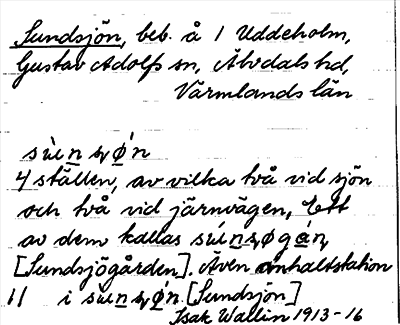 Sundsjön, beb. å 1 Uddeholm,
Gustav Adolfs sn, Älvdals hd,
Värmlands län
4 ställen, av vilka två vid sjön
och två vid järnvägen, Ett
av dem kallas
[Sundsjögården]. Även anhaltstation
11 i [Sundsjön]
Isak Wallin 1913-16